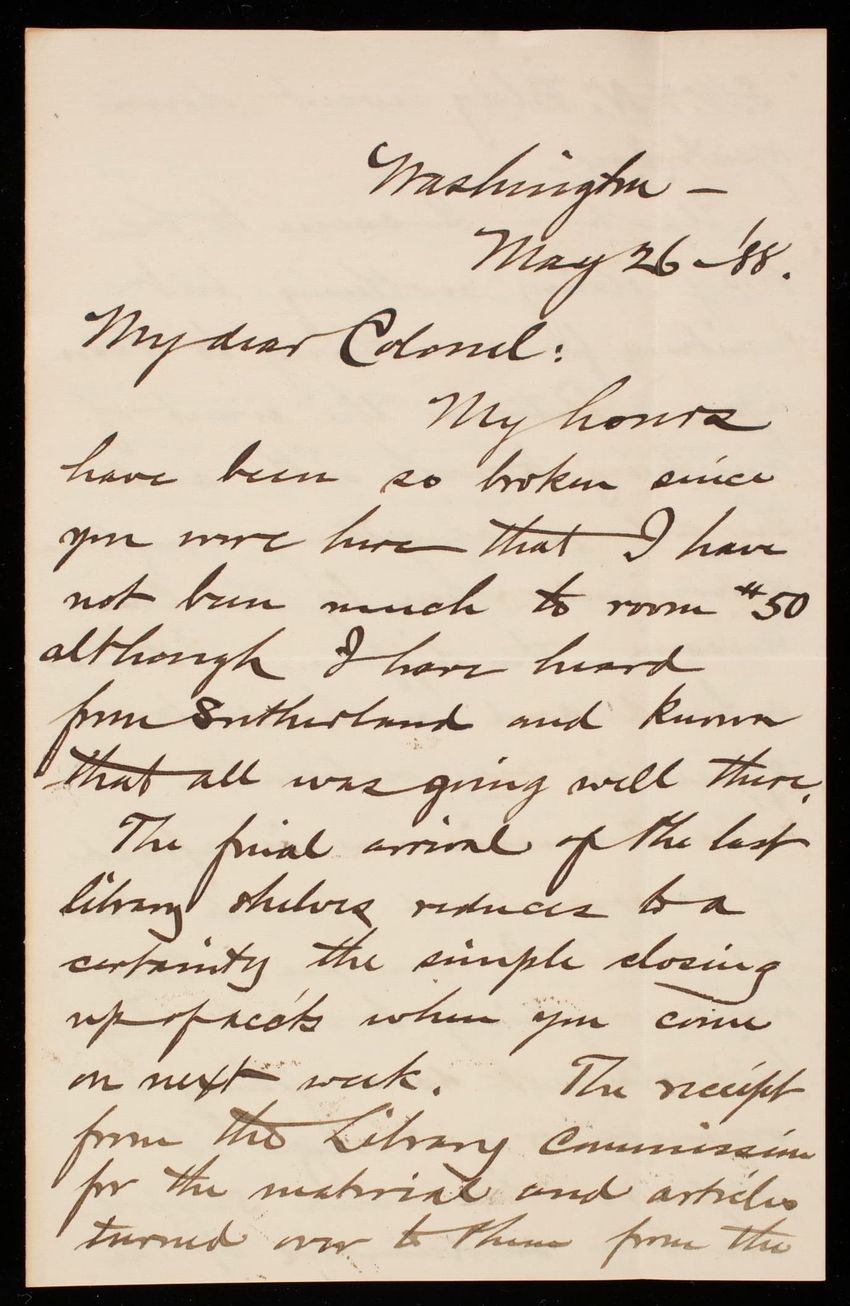 Washington —
May 26 - '88.
My dear Colonel:
My hours
have been so broken since
you were here that I have
not been much to room #50
although I have heard
from Sutherland and known
that all was going well there.
The final arrival of the last
library shelves reduces to a
certainty the simple closing
up of acc'ts when you come
on next week. The receipt
from the Library Commission
for the material and articles
turned over to them from the